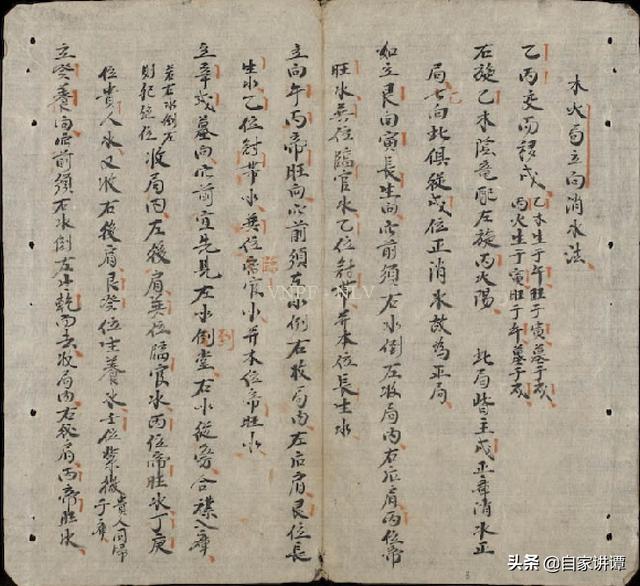 木火局立向消水法
乙丙交而移戌 乙木生于午旺于寅墓于戌
丙火生于寅旺于午墓于戌
右旋乙木陰竜配左旋丙火陽 此局皆主戌正庫消水正
局七向北俱從戌位正消水故為正局
如立艮向寅長生向穴前須右水倒左收局內右后肩丙位帝
旺水巽位臨官水乙位冠帶并本位長生水
立向午丙帝旺向穴前須左水倒右收局內左后肩艮位長
生水乙位冠帶水巽位臨官水并本位帝旺水
立辛戌墓向穴前宜先見左水倒堂右水從旁合襟入庫
若右水倒左
則犯 位收局內左後肩巽位臨官水丙位帝旺水丁庚
位貴人水又收右後肩艮癸位生養水壬位 于庚 貴人同
立癸養向穴前須右水倒左 乾而去收局內右後肩丙帝旺水
VNPF NLV
头条 @自家讲谭